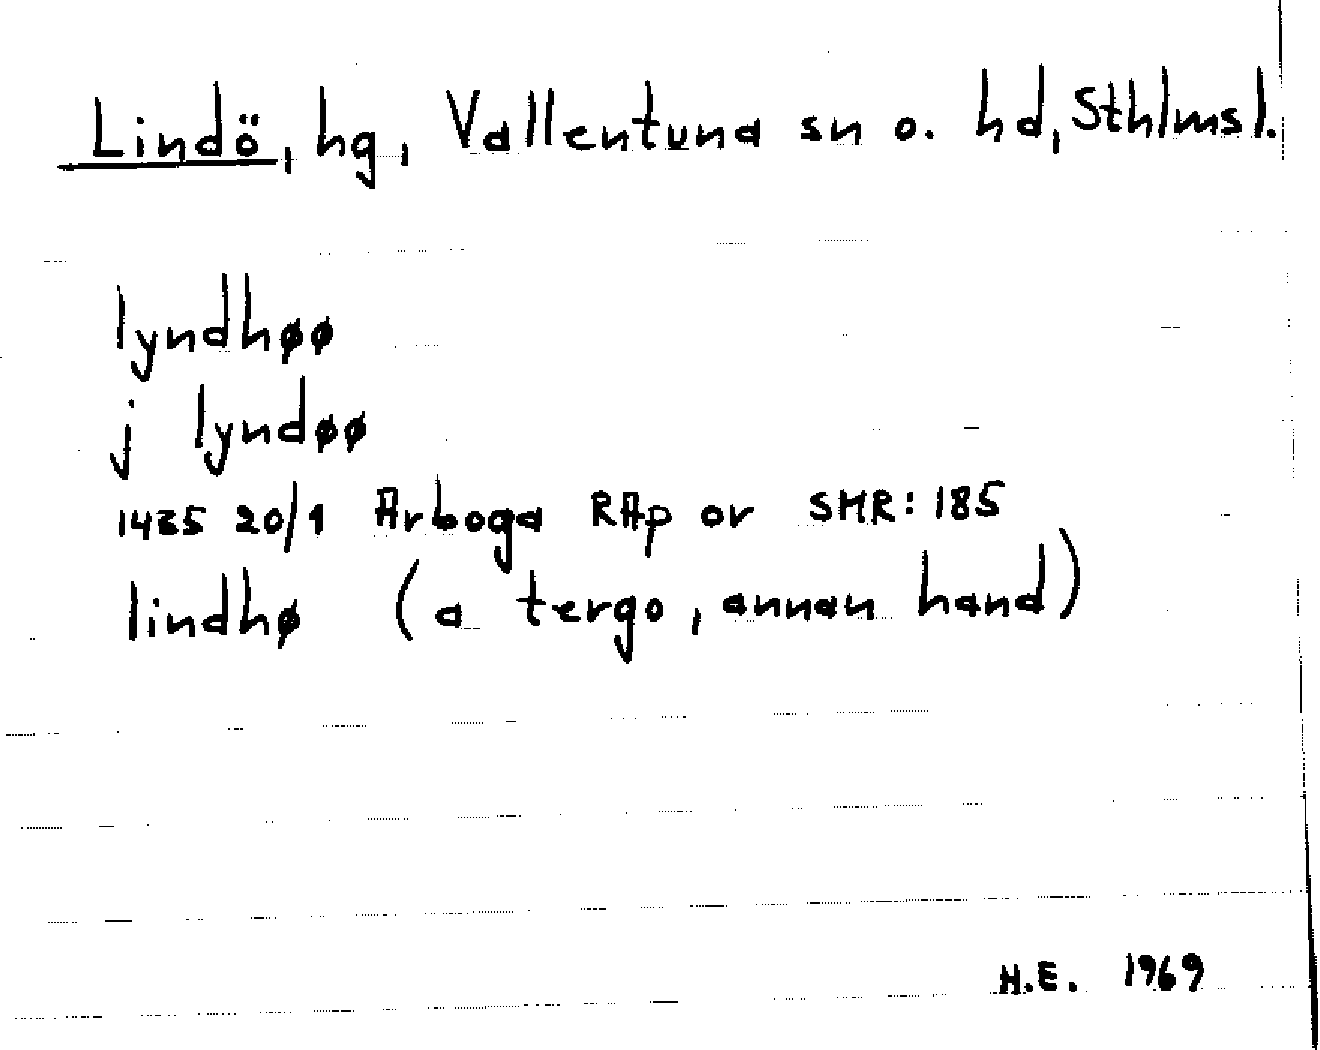 Lindö, hg, Vallentuna sn o. hd, Sthlmsl.
lyndhøø
j lyndøø
1435 20/1 Arboga RAp or SMR: 185
lindhø (a tergo, annan hand)
H.E. 1969